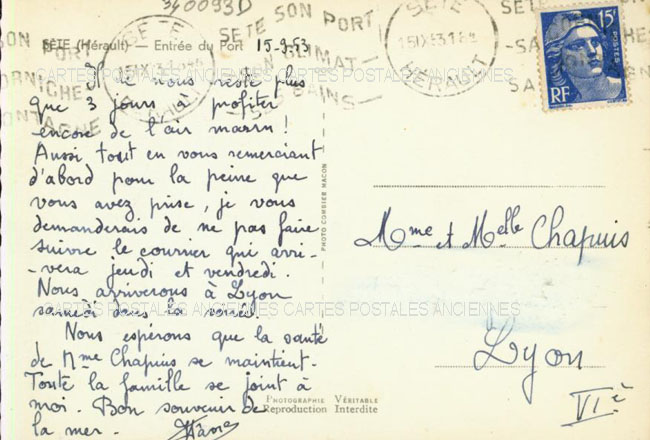 340093D
SÈTE (Hérault) — Entrée du Port 15-9.53
SETE SON PORT
SON CLIMAT
SES BAINS
SETE
HERAULT
15F
POSTES
RF
CARTES POSTALES ANCIENNES CARTES POSTALES ANCIENNES
Il ne nous reste plus
que 3 jours à profiter
encore de l'air marin!
Aussi tout en vous remerciant
d'abord pour la peine que
vous avez prise, je vous
demanderais de ne pas faire
suivre le courrier qui arri-
-vera jeudi et vendredi.
Nous arriverons à Lyon
samedi dans la soirée.
CARTES POSTALES ANCIENNES CARTES POSTALES ANCIENNES
Nous espérons que la santé
de Mme Chapuis se maintient.
Toute la famille se joint à
moi. Bon souvenir de
la mer.
PHOTO COMBIER MACON
Mme et Melle Chapuis
Lyon
VIè
PHOTOGRAPHIE VÉRITABLE
Reproduction Interdite